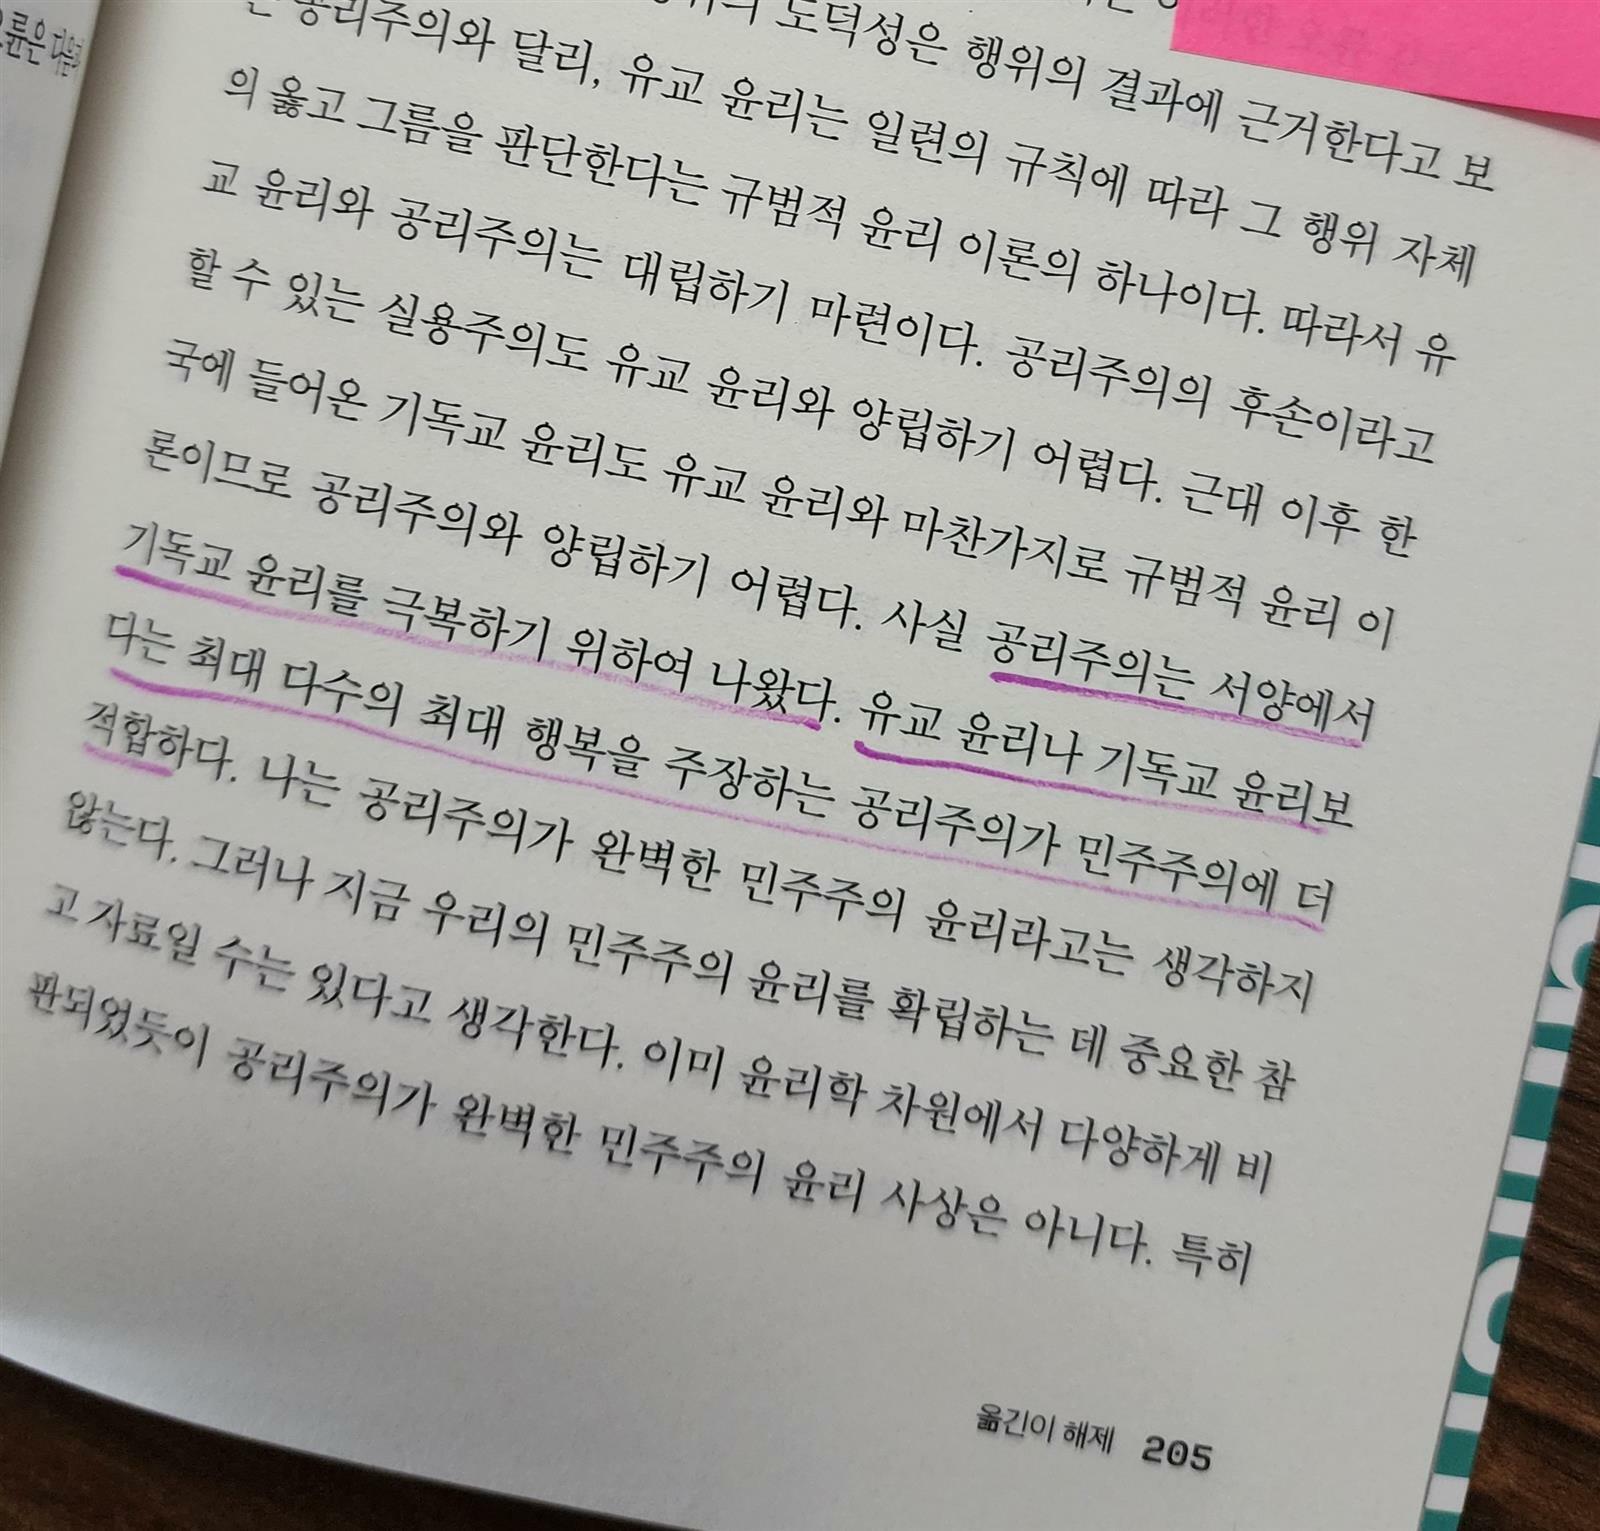 도덕성은 행위의 결과에 근거한다고 보
공리주의와 달리, 유교 윤리는 일련의 규칙에 따라 그 행위 자체
의 옳고 그름을 판단한다는 규범적 윤리 이론의 하나이다. 따라서 유
교 윤리와 공리주의는 대립하기 마련이다. 공리주의의 후손이라고
할 수 있는 실용주의도 유교 윤리와 양립하기 어렵다. 근대 이후 한
국에 들어온 기독교 윤리도 유교 윤리와 마찬가지로 규범적 윤리 이
론이므로 공리주의와 양립하기 어렵다. 사실 공리주의는 서양에서
기독교 윤리를 극복하기 위하여 나왔다. 유교 윤리나 기독교 윤리보
다는 최대 다수의 최대 행복을 주장하는 공리주의가 민주주의에 더
적합하다. 나는 공리주의가 완벽한 민주주의 윤리라고는 생각하지
않는다. 그러나 지금 우리의 민주주의 윤리를 확립하는 데 중요한 참
고 자료일 수는 있다고 생각한다. 이미 윤리학 차원에서 다양하게 비
판되었듯이 공리주의가 완벽한 민주주의 윤리 사상은 아니다. 특히
옮긴이 해제 205